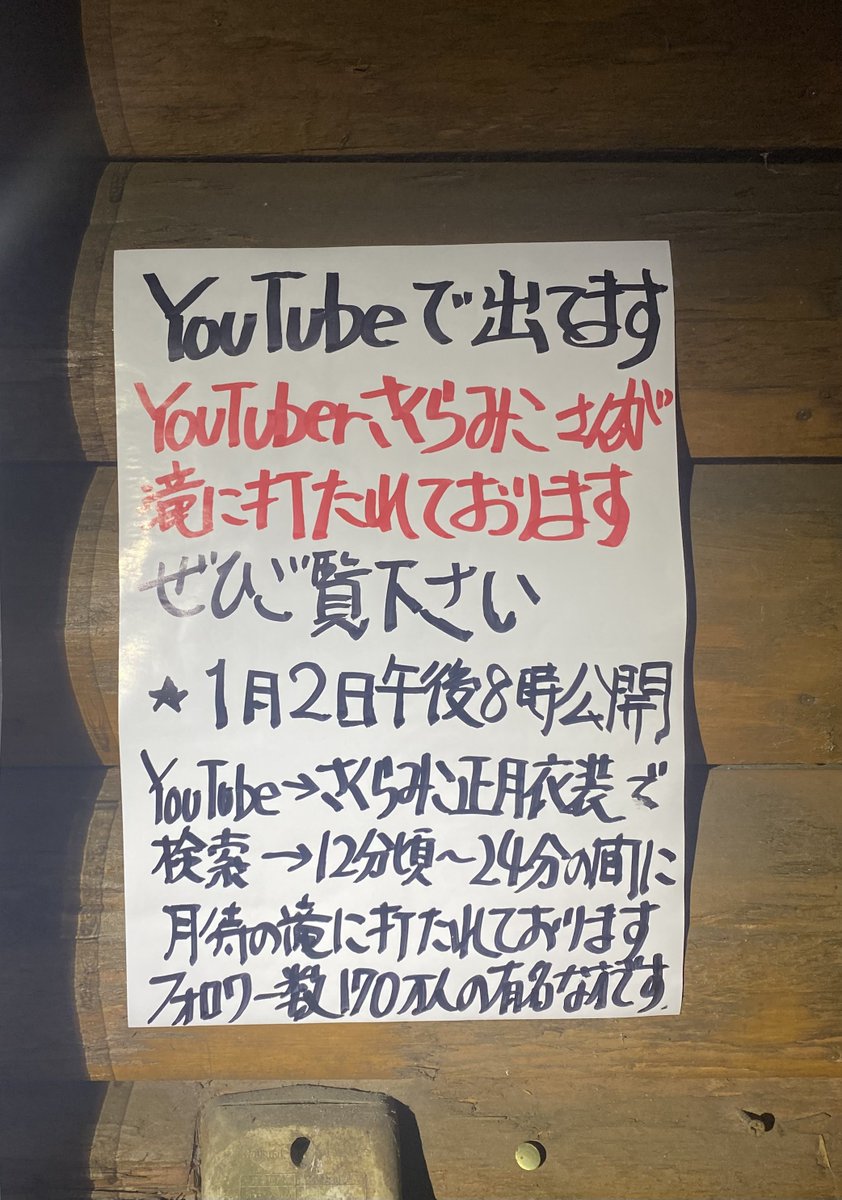 YouTubeで出てます
YouTuberさくらみこさんが
滝に打たれております
ぜひご覧下さい
★1月2日午後8時公開
YouTube→さくらみこ正月衣装で
検索→12分頃～24分の間に
月待の滝に打たれております
フォロワー数170万人の有名な方です